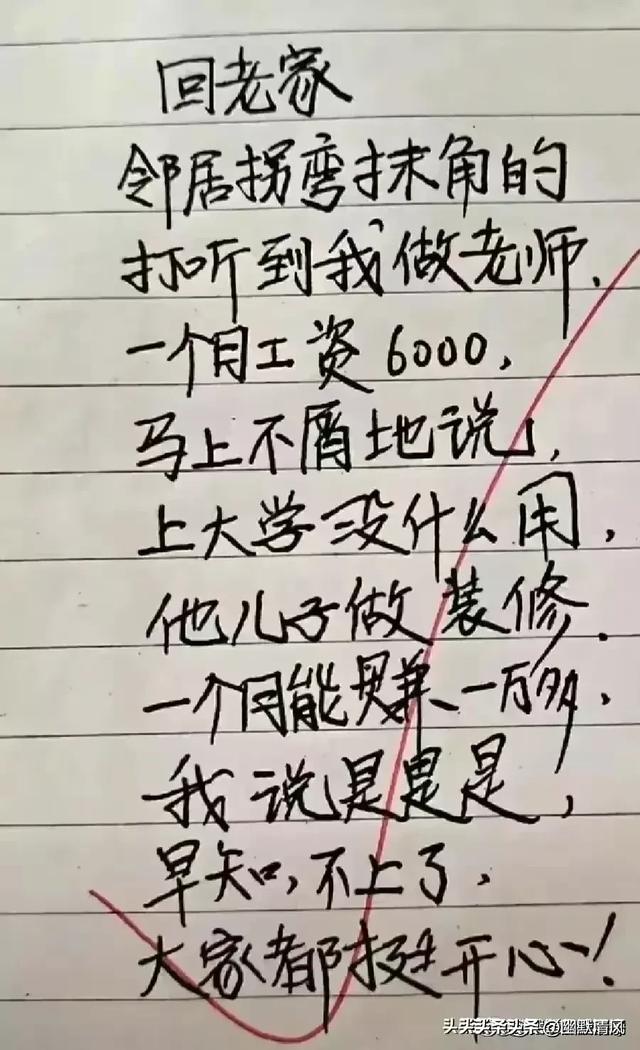 回老家
邻居拐弯抹角的
打听到我做老师,
一个月工资6000,
马上不屑地说,
上大学没什么用,
他儿子做装修,
一个月能赚一万多,
我说是是是,
早知,不上了,
大家都挺开心!